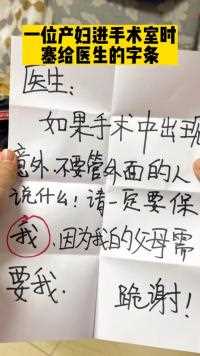 一位产妇进手术室时
塞给医生的字条
医生:
如果手术中出现
意外.不要管外面的人
说什么!请一定要保
我.因为我的父母需
要我. 跪谢!